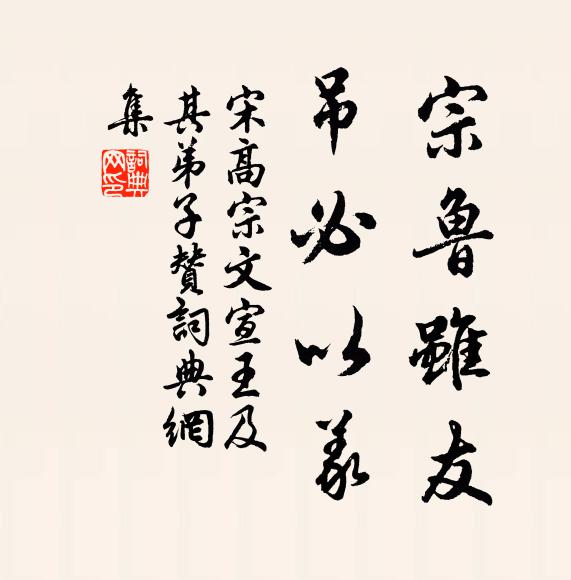 宗魯雖友
吊必以義
宋高宗文宣王及
其弟子贊詞典網
集
詞典网印